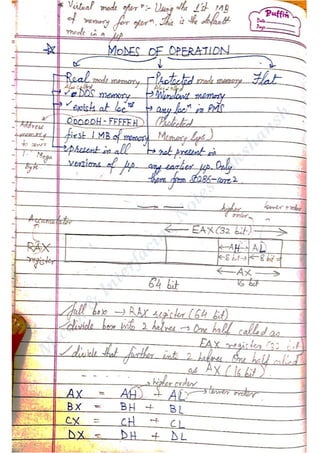 Puffin
Date
Page
* Virtual mode oper^n :- Using the 1st MB
of memory for oper^n. This is the default
mode in a µp
MODES OF OPERATION
Real mode memory Protected mode memory Flat
Also called Also called
→ DOS memory → Windows memory
→ exists at loc^ns → any loc^n in PMS
00000H-FFFFFH (Protected
first 1 MB of memory Memory
→ Present in all → not present in
versions of µp any earlier µp. Only
Address
memory
1 Mega
Byte
higher order lower order
Accumulator
← EAX (32 bit) →
RAX
register
AH AL
8 bit 8 bit
← AX →
64 bit 16 bit
✓ full box → RAX register (64 bit)
✓ divide box into 2 halves → One half called as
EAX register (32 bit)
✓ divide that further into 2 halves One half called
as AX (16 bit)
higher order
AX = AH + AL → lower order
BX = BH + BL
CX = CH + CL
DX = DH + DL